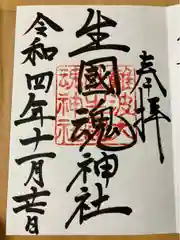 奉拝
生國魂神社
令和四年十一月廿日